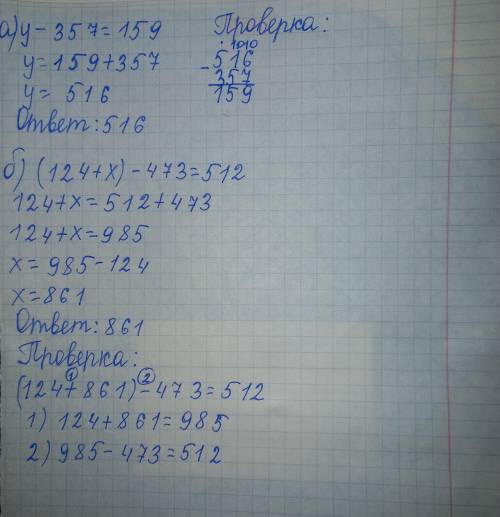 а) у - 357 = 159
у = 159 + 357
у = 516
Ответ: 516
Проверка:
. 10 10
- 516
357
159
б) (124 + х) - 473 = 512
124 + х = 512 + 473
124 + х = 985
х = 985 - 124
х = 861
Ответ: 861
Проверка:
1 2
(124 + 861) - 473 = 512
1) 124 + 861 = 985
2) 985 - 473 = 512